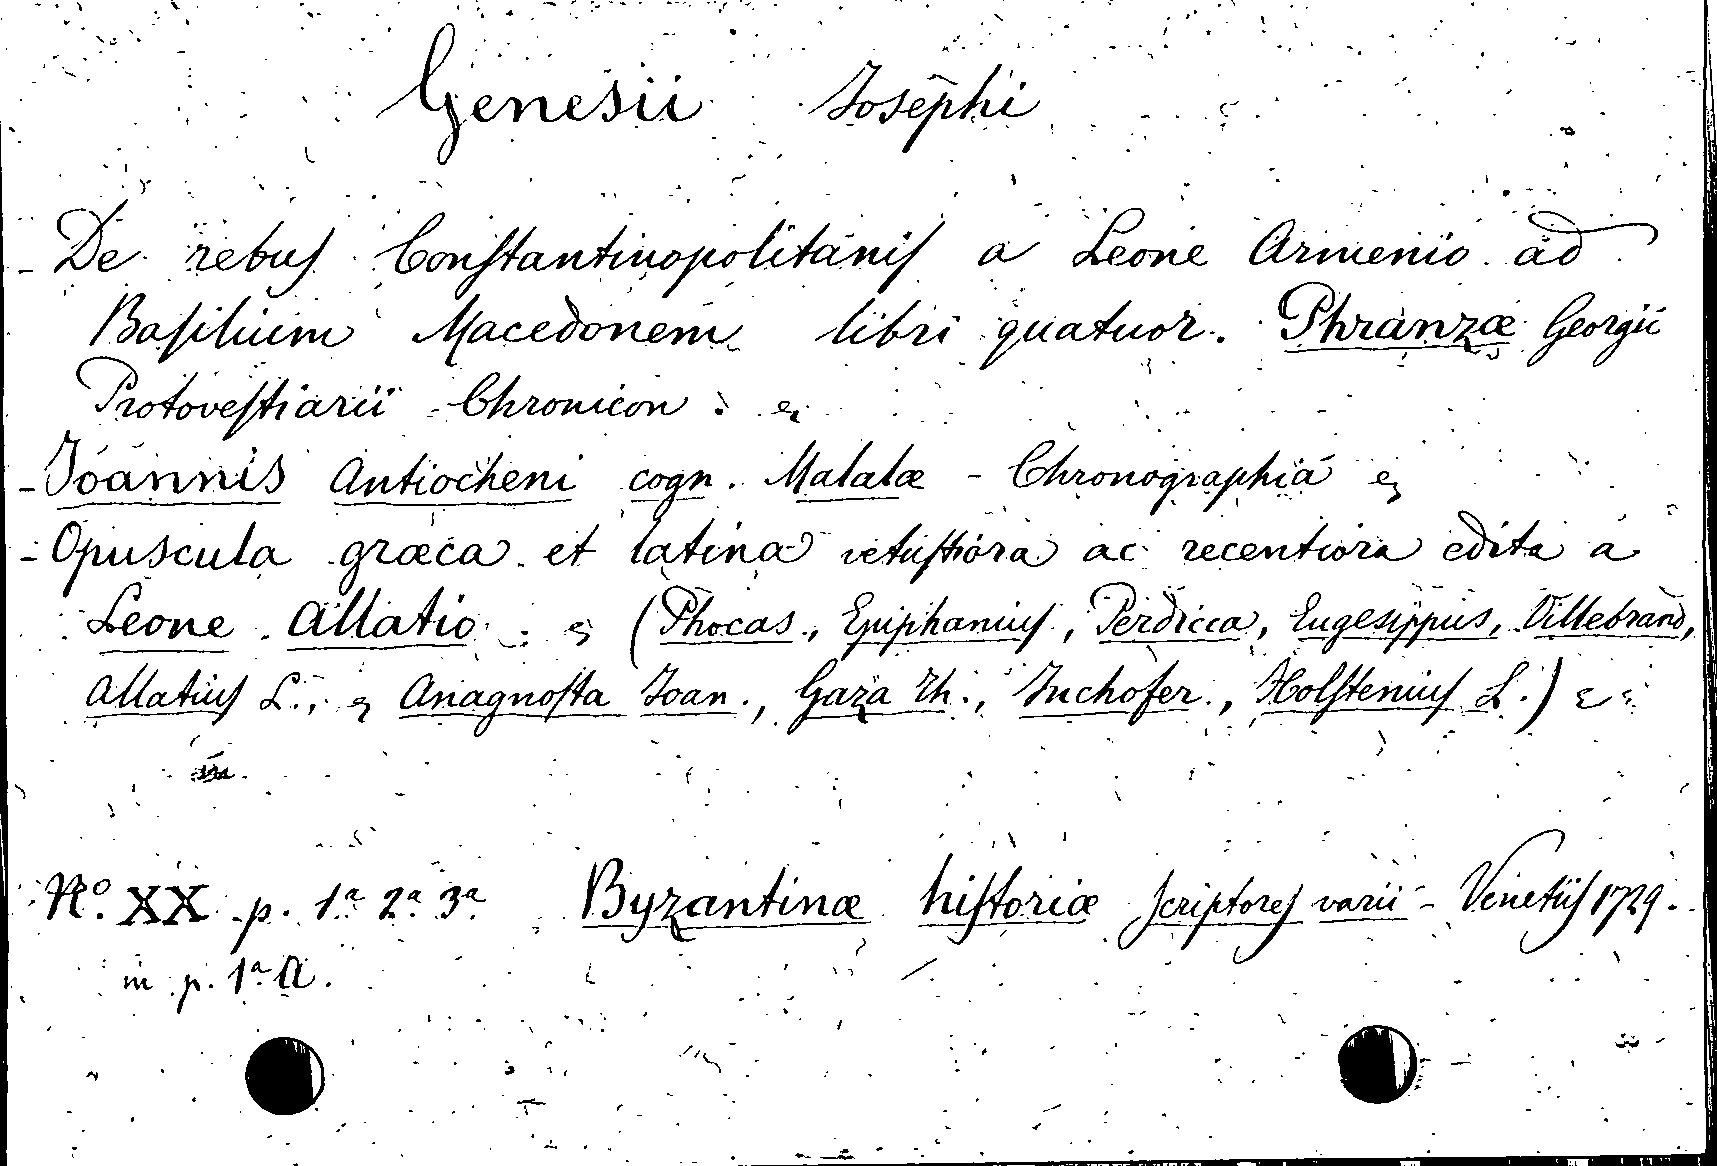 Genesii Josephi
- De rebus Constantinopolitanis a Leone Armenio ad
Basilium Macedonem libri quatuor. Phranzæ Georgii
Protovestiarii Chronicon.
- Joannis Antiocheni cogn. Malalæ - Chronographia
- Opuscula græca et latina vetustiora ac recentiora edita a
Leone Allatio (Phocas, Epiphanius, Perdicca, Eugesippus, Villebrand,
Allatius L., Anagnosta Joan., Gaza Th., Inchofer., Holstenius L.)
No. XX p. 1a 2a 3a Byzantinæ historiæ scriptores varii - Venetiis 1729.
in p. 1a